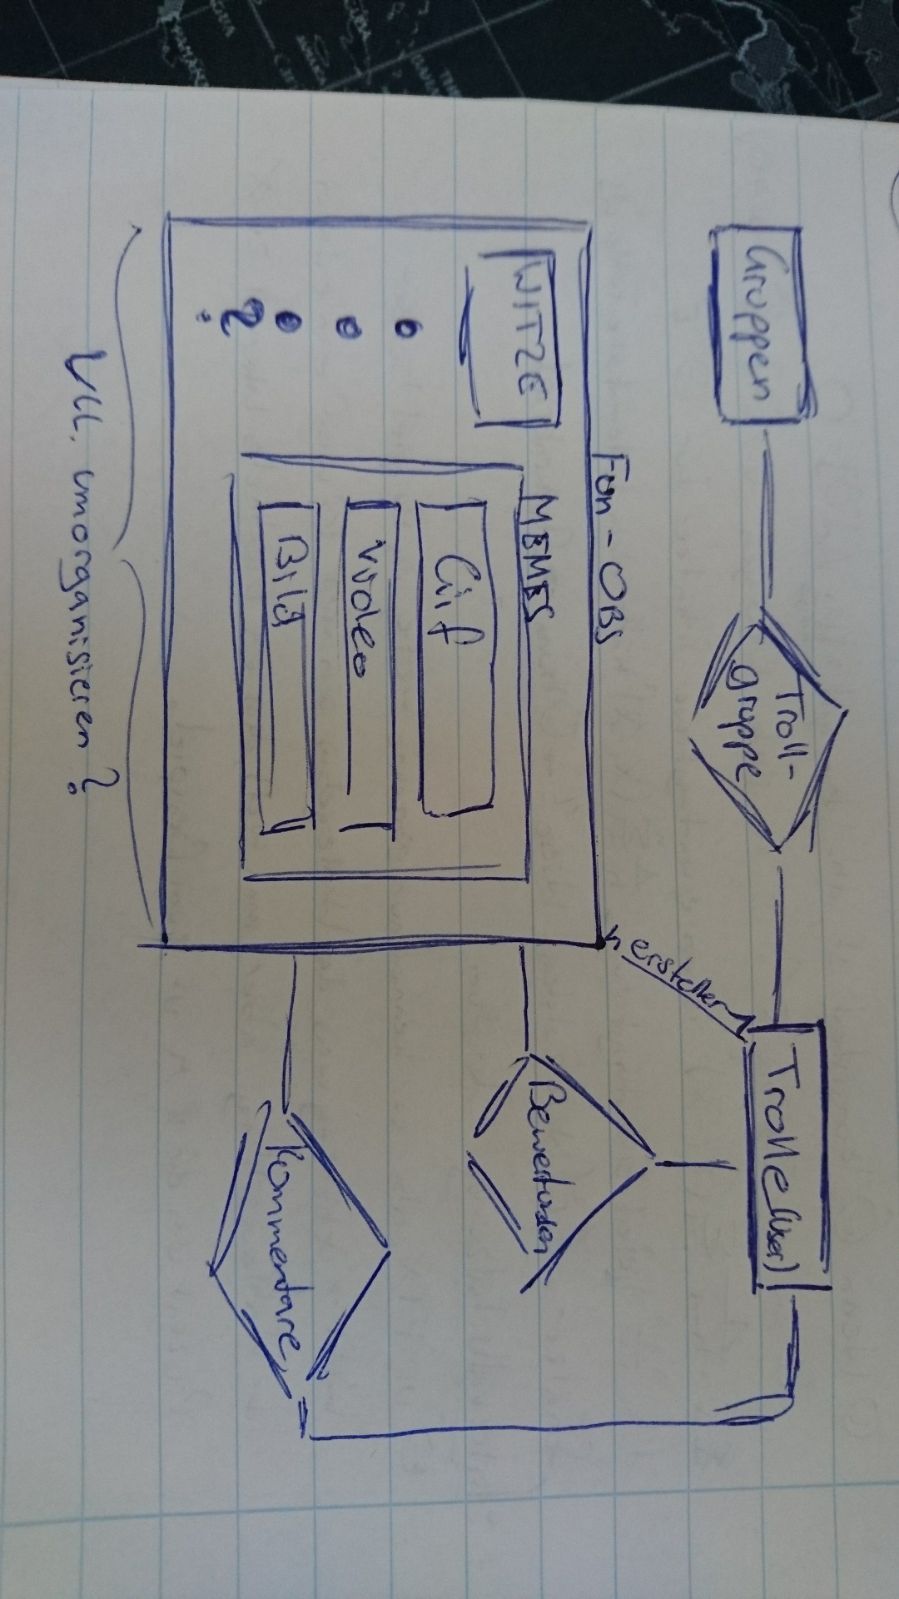 Gruppen
Troll-
gruppe
Trolle (User)
hersteller
Fun-OBS
WITZE
?
MEMES
Gif
Video
Bild
Kommentare
Vll. umorganisieren?